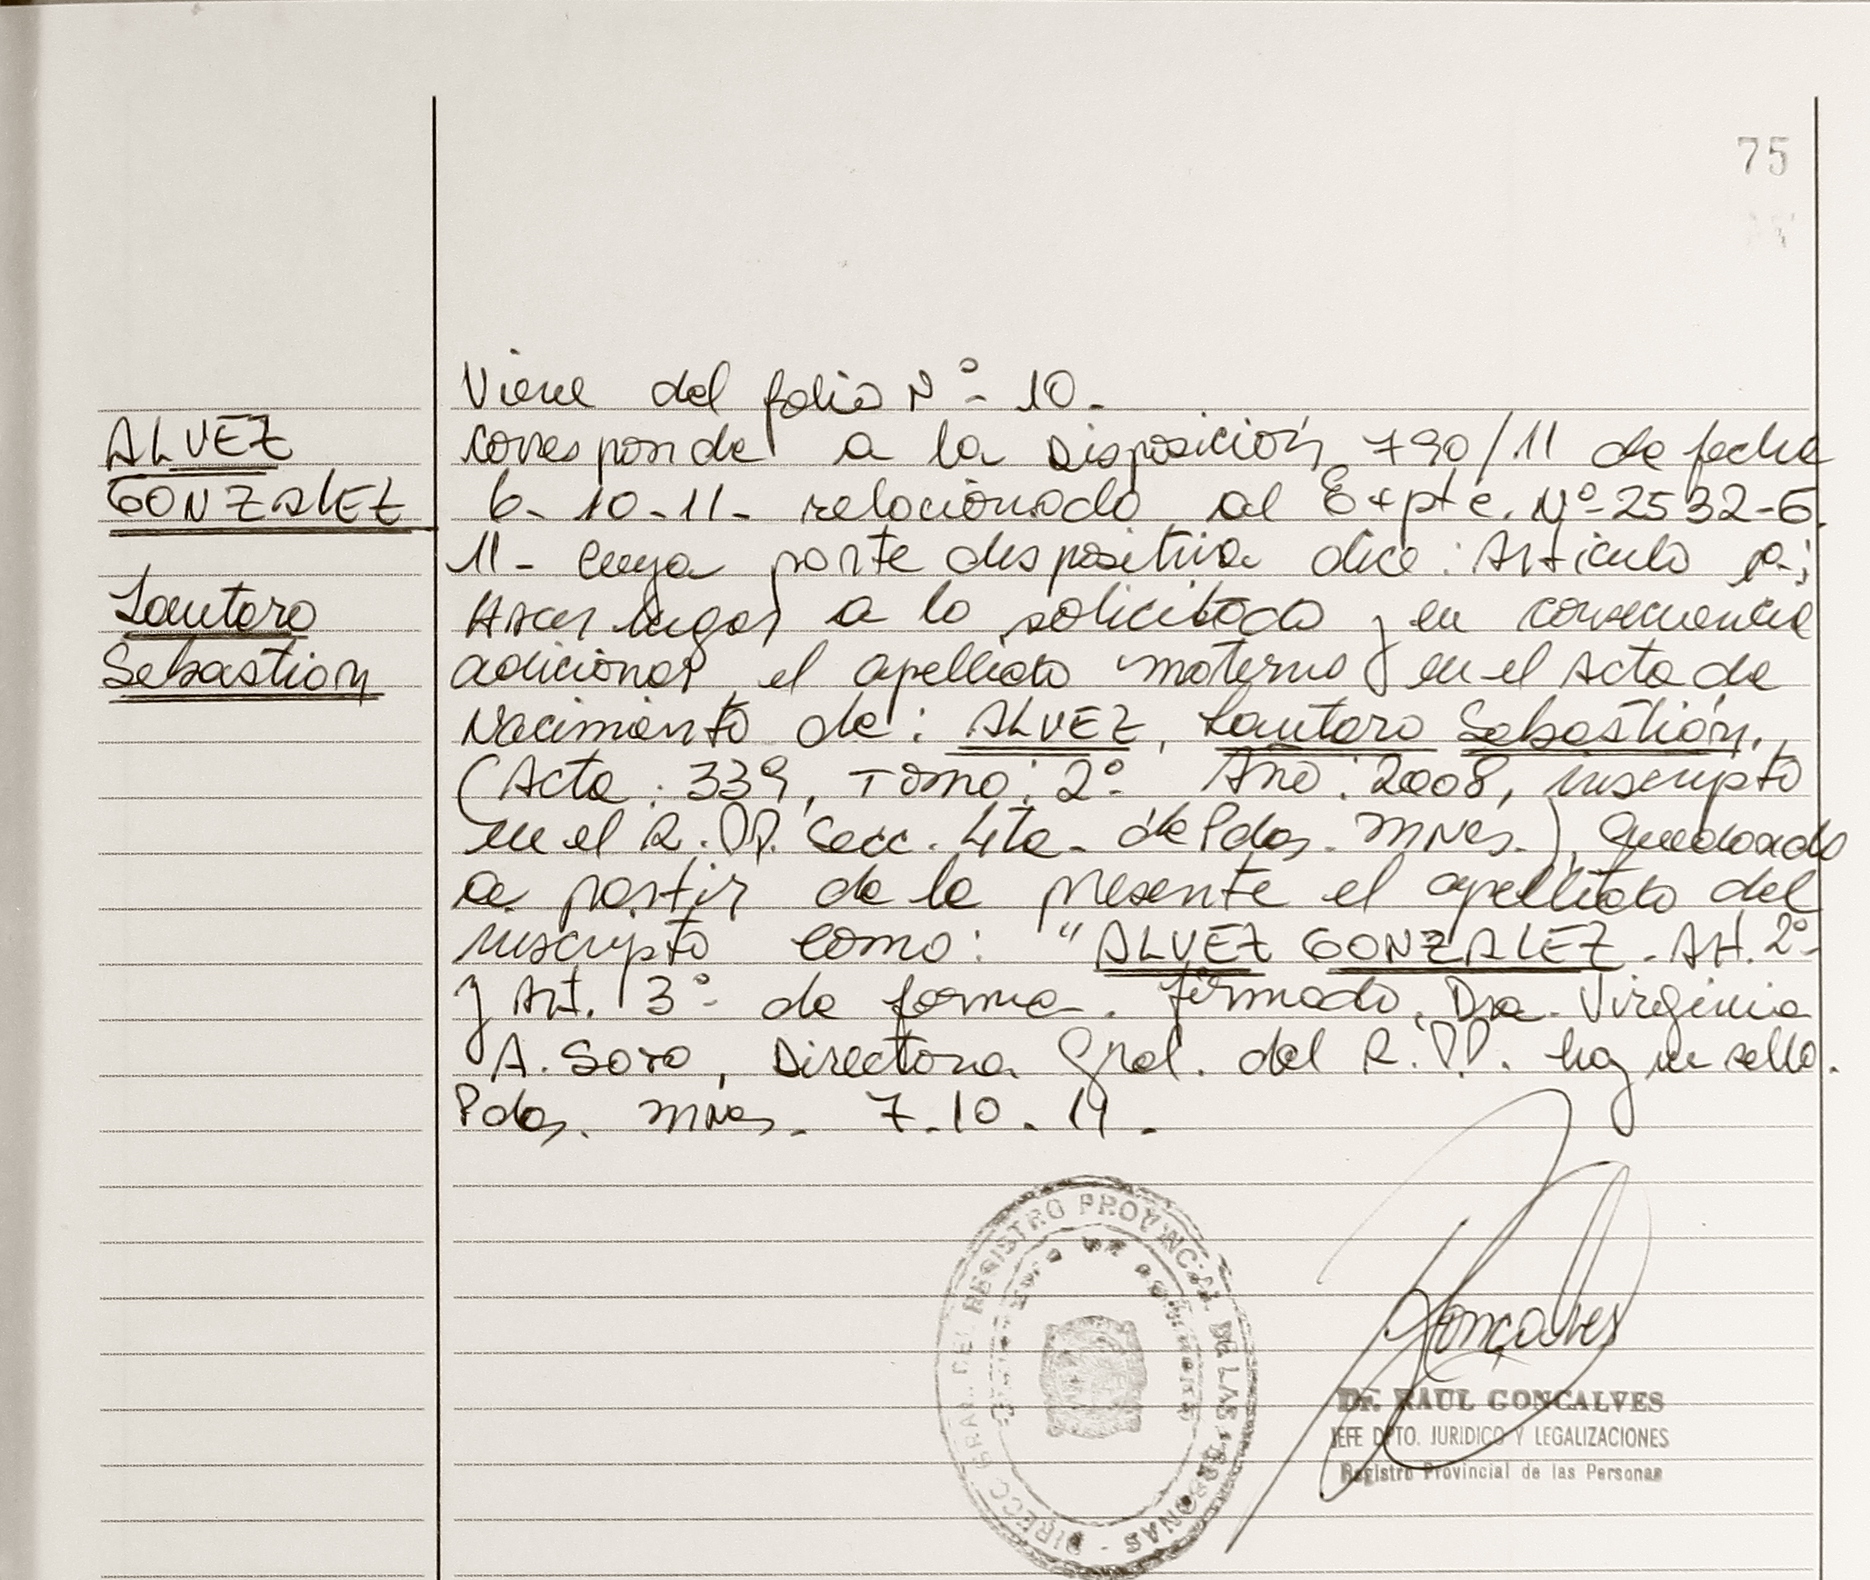 75
ALVEZ
GONZALEZ
Lautaro
Sebastián
Viene del folio Nº 10.
corresponde a la Disposición 790/11 de fecha
6-10-11- relacionado al Expte. Nº 2532-G.
11- Cuya parte dispositiva dice: Artículo
Hacer lugar a lo solicitado y en consecuencia
adicionar el apellido materno en el Acta de
Nacimiento de: ALVEZ, Lautaro Sebastián,
(Acta: 339, Tomo: 2º Año: 2008, inscripto
en el R.PP. Secc. 4ta. de Pdas. Mnes.), quedando
a partir de la presente el apellido del
inscripto como: "ALVEZ GONZALEZ. Art. 2º
y Art. 3º de forma. firmado, Dra. Virginia
A. Soro, Directora Gral. del R.PP. hay un sello.
Pdas. Mnes. 7.10.11.
DIRECC. GRAL. DEL REGISTRO PROVINCIAL DE LAS PERSONAS -
Goncalves
Dr. RAUL GONCALVES
JEFE DPTO. JURIDICO Y LEGALIZACIONES
Registro Provincial de las Personas